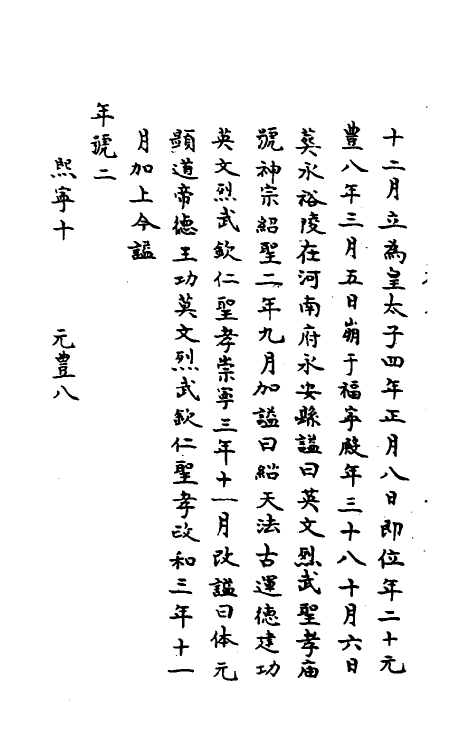 十二月立為皇太子四年正月八日即位年二十元
豊八年三月五日崩于福寜殿年三十八十月六日
葬永裕陵在河南府永安縣謚曰英文烈武聖孝庙
號神宗紹聖二年九月加謚曰紹天法古運德建功
英文烈武欽仁聖孝崇寜三年十一月改謚曰体元
顯道帝德王功英文烈武欽仁聖孝政和三年十一
月加上今謚
年號二
熈寜十　元豊八